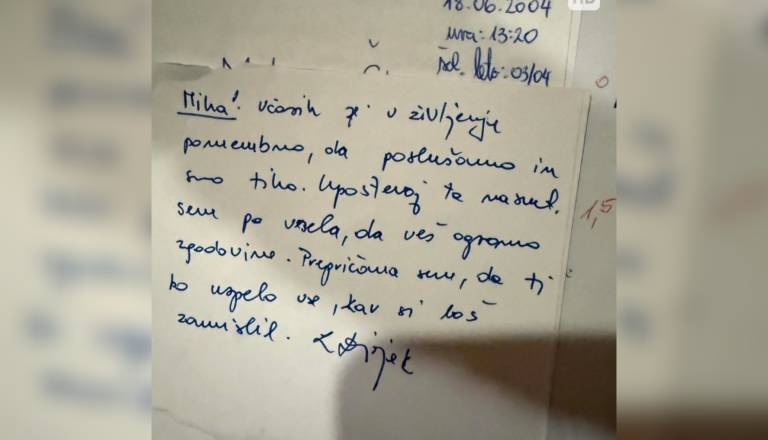 18.06.2004
ura: 13:20
šol. leto: 03/04
Miha! Včasih je v življenju
pomembno, da poslušamo in
smo tiho. Upoštevaj ta nasvet.
sem pa vesela, da veš ogromno
zgodovine. Prepričana sem, da ti
bo uspelo vse, kar si boš
zamislil.
1,5